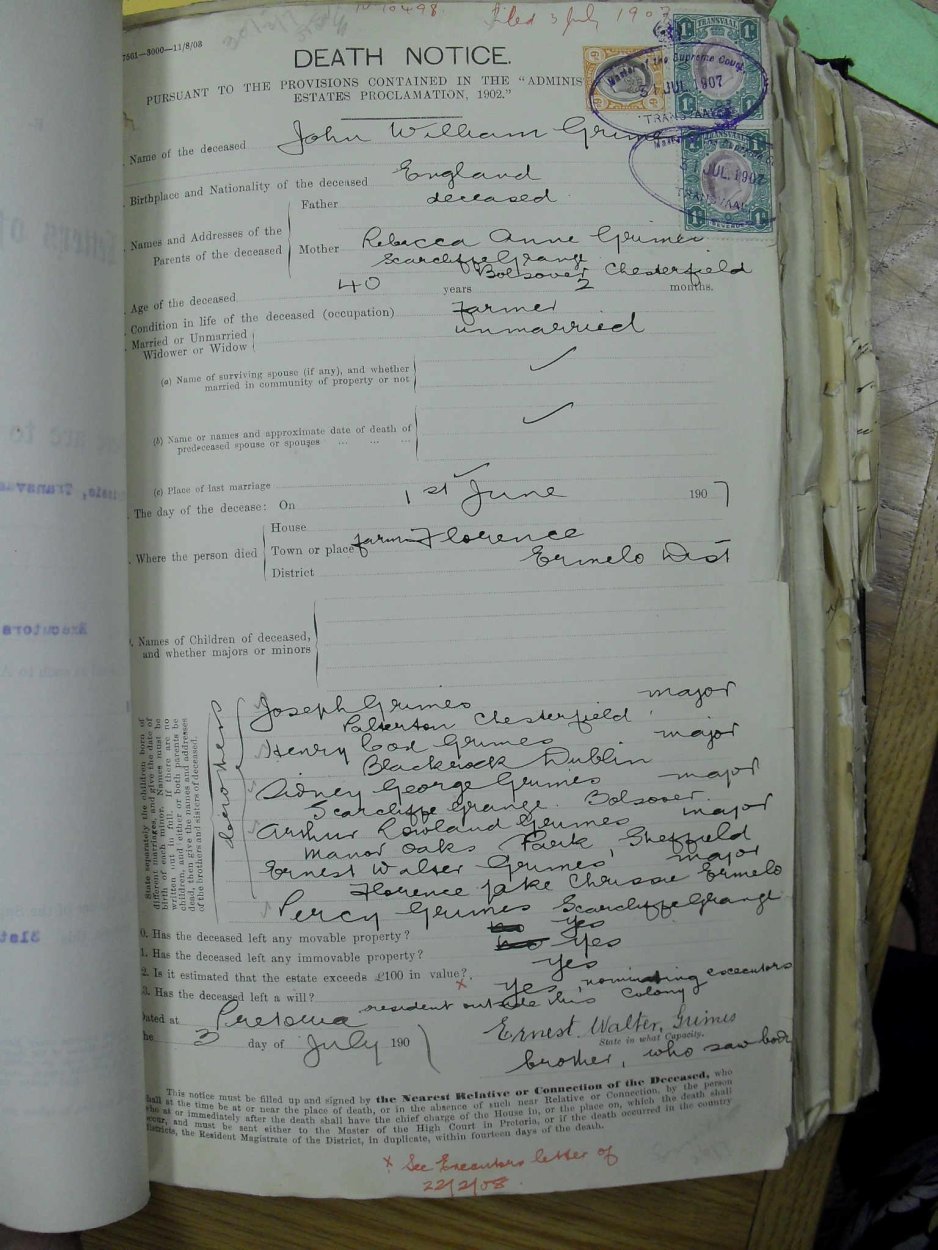 No 10498. Filed 3 July 1907
7561—3000—11/8/03
DEATH NOTICE.
PURSUANT TO THE PROVISIONS CONTAINED IN THE "ADMINIS
ESTATES PROCLAMATION, 1902."
TRANSVAAL
Master of the Supreme Court
JUL 1907
TRANSVAAL
TRANSVAAL
JUL. 1907
TRANSVAAL
REVENUE
Name of the deceased John William Grimes
Birthplace and Nationality of the deceased England
Names and Addresses of the Parents of the deceased
Father deceased
Mother Rebecca Anne Grimes
Scarcliffe Grange
Bolsover Chesterfield
Age of the deceased 40 years 2 months.
Condition in life of the deceased (occupation) Farmer
Married or Unmarried unmarried
Widower or Widow
(a) Name of surviving spouse (if any), and whether
married in community of property or not ✓
(b) Name or names and approximate date of death of
predeceased spouse or spouses ... ... ... ✓
(c) Place of last marriage ✓
The day of the decease: On 1st June 1907
Where the person died
House
Town or place farm Florence
District Ermelo Dist
Names of Children of deceased,
and whether majors or minors
State separately the children born of
different marriages, and give the date of
birth of each minor. Names must be
written out in full. If there are no
children, and either or both parents be
dead, then give the names and addresses
of the brothers and sisters of deceased.
brothers
Joseph Grimes major
Palterton Chesterfield
Henry Cox Grimes major
Blackrock Dublin
Sidney George Grimes major
Scarcliffe Grange. Bolsover
Arthur Rowland Grimes major
Manor Oaks Park, Sheffield
Ernest Walter Grimes major
Florence Lake Chrissie Ermelo
Percy Grimes Scarcliffe Grange
0. Has the deceased left any movable property? no yes
1. Has the deceased left any immovable property? no yes
2. Is it estimated that the estate exceeds £100 in value? yes
3. Has the deceased left a will? × yes, nominating executors
resident outside this Colony
Dated at Pretoria
the 3 day of July 1907
Ernest Walter Grimes
State in what Capacity.
brother, who saw body
This notice must be filled up and signed by the Nearest Relative or Connection of the Deceased, who
shall at the time be at or near the place of death, or in the absence of such near Relative or Connection, by the person
who at or immediately after the death shall have the chief charge of the House in, or the place on, which the death shall
occur, and must be sent either to the Master of the High Court in Pretoria, or if the death occurred in the country
districts, the Resident Magistrate of the District, in duplicate, within fourteen days of the death.
× See Executors letter of
22/2/08.